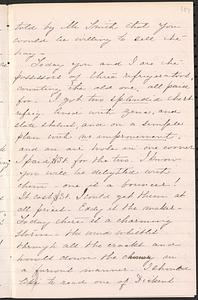 told by Mr. Smith that you
would be willing to sell the
Today you and I are the
possessors of three refrigerators,
counting the old one, all paid
for. I got two splendid chest
refrig. lined with zinc, and
slate shelves, and on a simple
plan with no improvements,
and an ice hole in one corner
I paid $51. for the two. I know
you will be delighted with
them - one is a bouncer!
It cost $31. I could get them at
all prices. Eddy is the maker.
Today there is a charming
storm - the wind whistles
through all the cracks and
howls down the chimney in
a furious manner. I should
like to read one of Dickens'